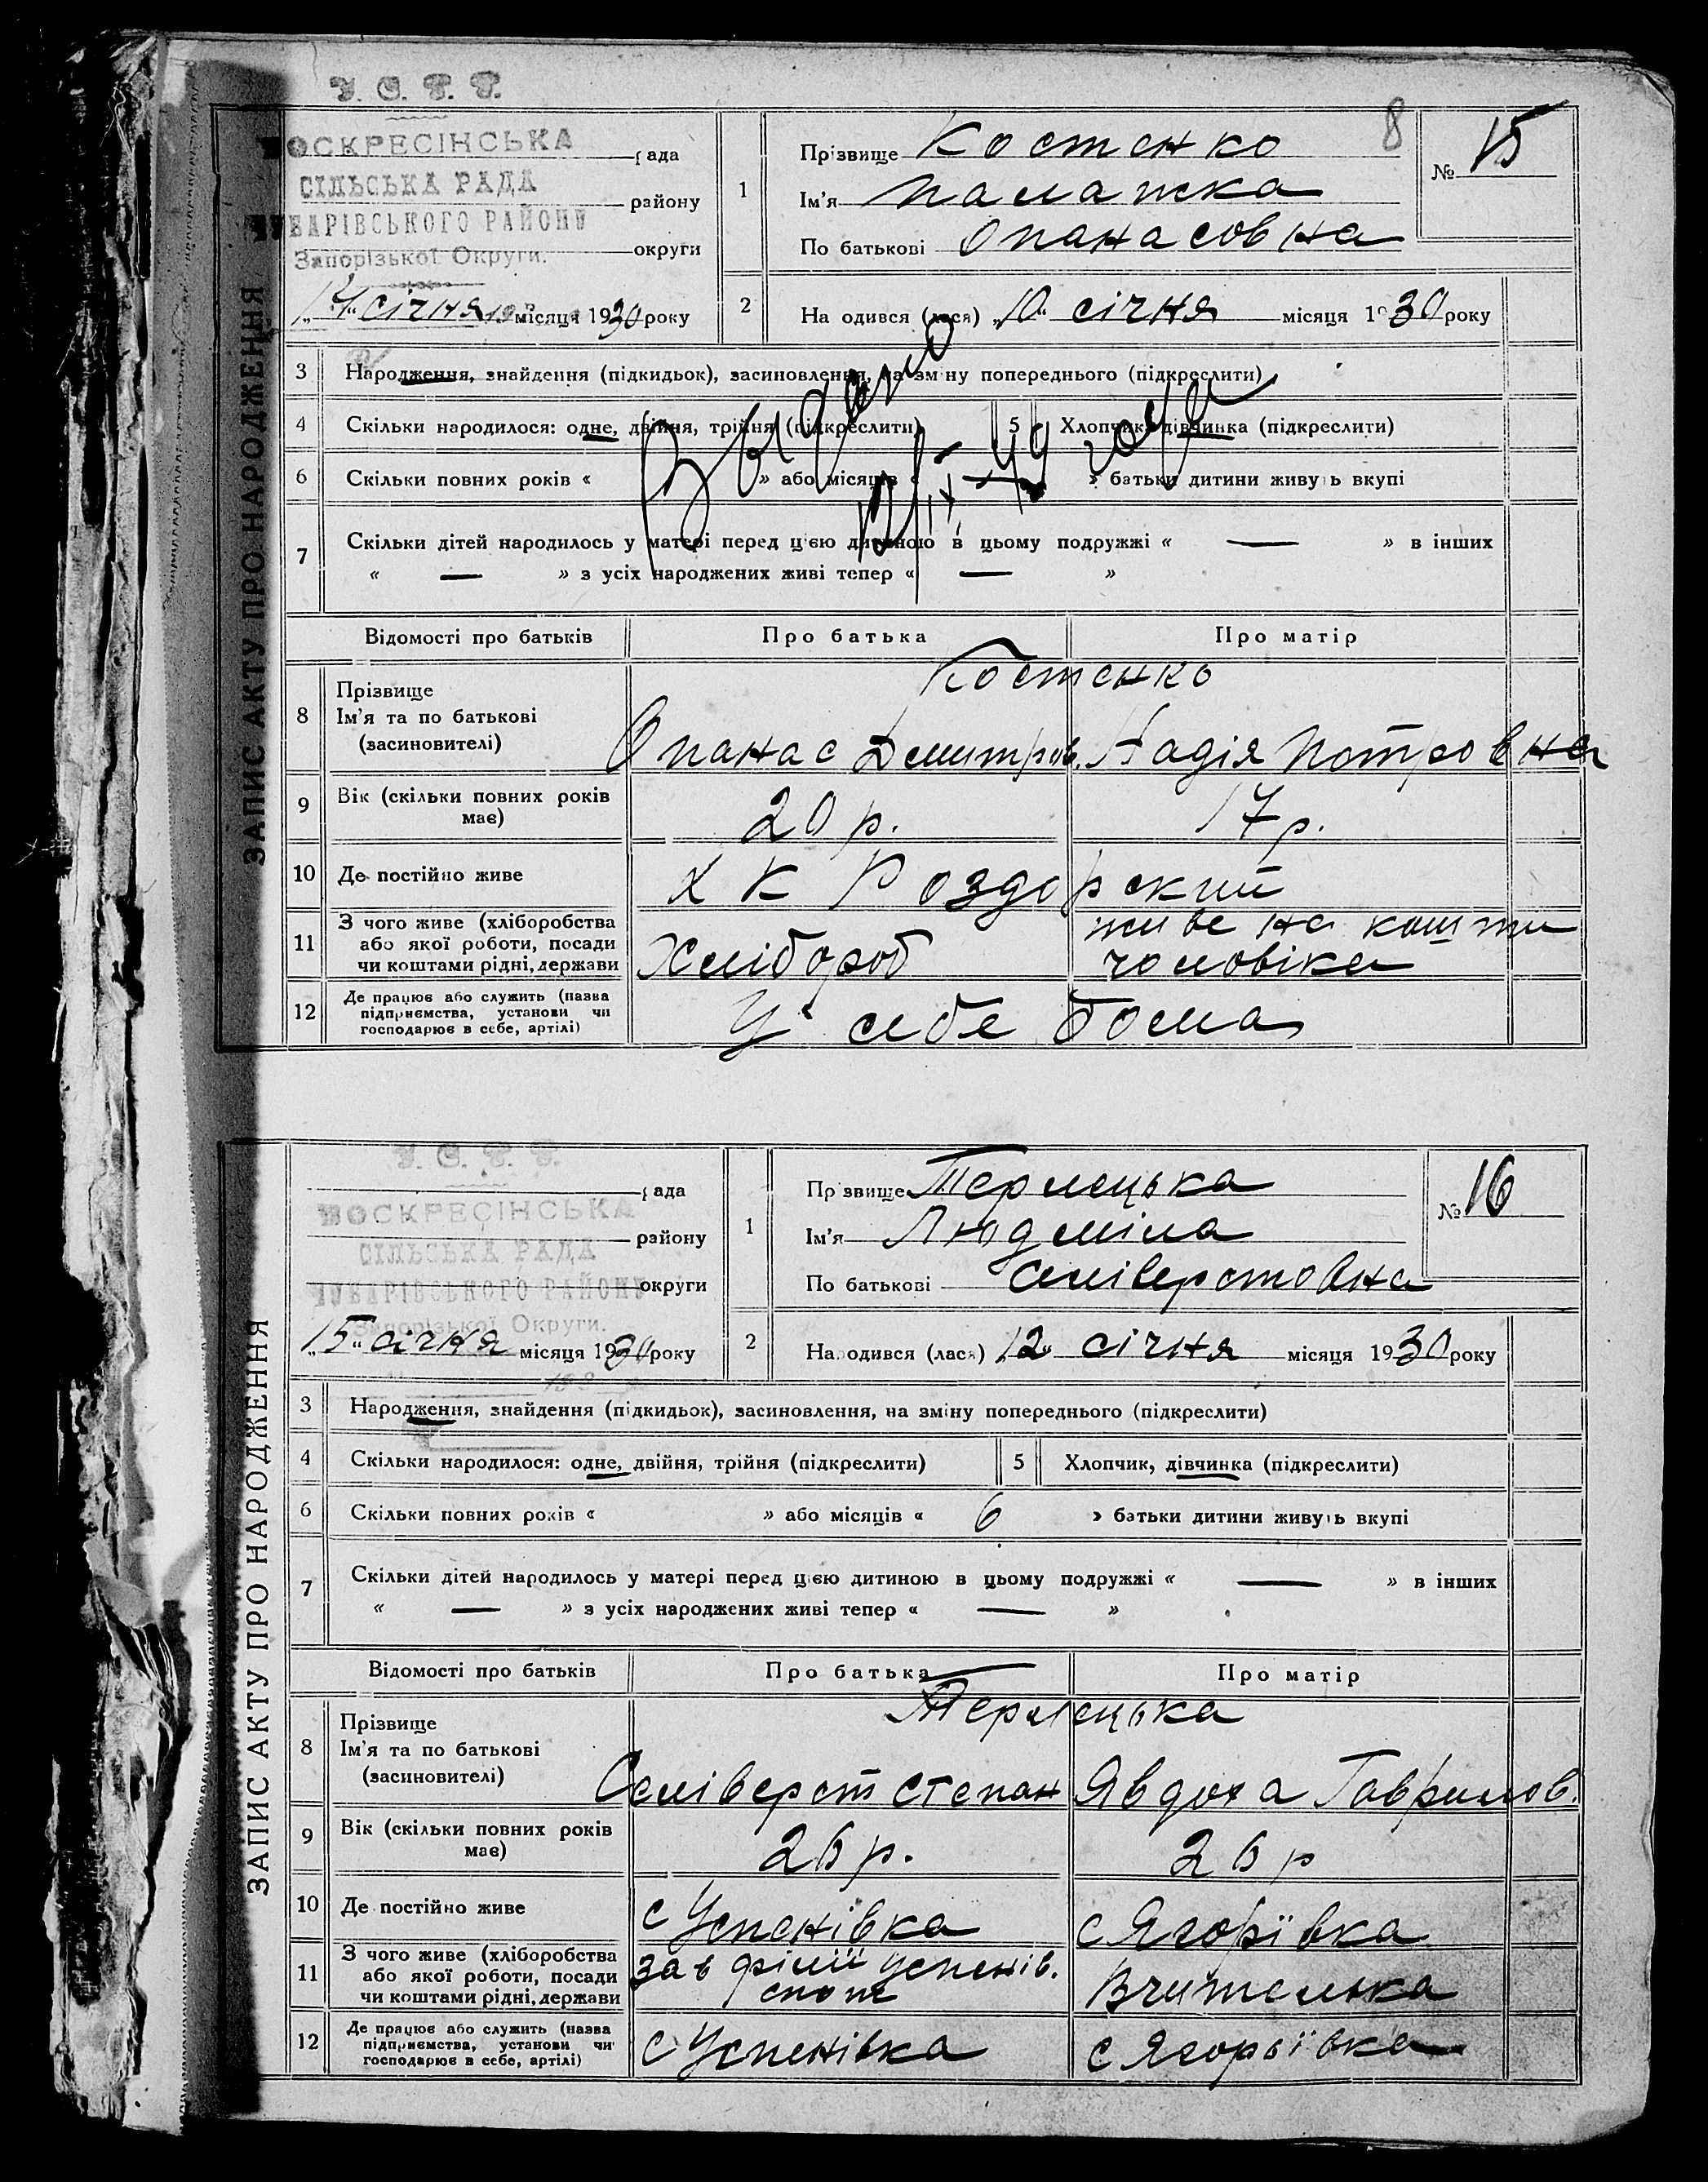 У. С. Р. Р.
ВОСКРЕСІНСЬКА рада
СІЛЬСЬКА РАДА району
ЧУБАРІВСЬКОГО РАЙОНУ
Запорізької Округи. округи
„14“ січня місяця 1930 року
8
1 Прізвище Костенко
Ім'я Палажка
По батькові Опанасовна
№ 15
2 Народився (лася) „10“ січня місяця 1930 року
ЗАПИС АКТУ ПРО НАРОДЖЕННЯ
3 Народження, знайдення (підкидьок), засиновлення, на зміну попереднього (підкреслити)
4 Скільки народилося: одне, двійня, трійня (підкреслити) 5 Хлопчик, дівчинка (підкреслити)
Выдано
49 года
6 Скільки повних років « » або місяців « » батьки дитини живуть вкупі
7 Скільки дітей народилось у матері перед цією дитиною в цьому подружжі « — » в інших
« — » з усіх народжених живі тепер « — »
Відомості про батьків Про батька Про матір
8 Прізвище Костенко
Ім'я та по батькові
(засиновителі) Опанас Дмитров. Надія Потровна
9 Вік (скільки повних років має) 20 р. 17 р.
10 Де постійно живе х К Роздорский
11 З чого живе (хліборобства
або якої роботи, посади
чи коштами рідні, держави Хлібороб живе на кошти
чоловіка
12 Де працює або служить (назва
підприємства, установи чи
господарює в себе, артілі) У себе дома
У. С. Р. Р.
рада
ВОСКРЕСІНСЬКА
району
СІЛЬСЬКА РАДА
ЧУБАРІВСЬКОГО РАЙОНУ округи
Запорізької Округи.
„15“ січня місяця 1930 року
193
1 Прізвище Терлецька
Ім'я Людміла
По батькові Селіверстовна
№ 16
2 Народився (лася) „12“ січня місяця 1930 року
ЗАПИС АКТУ ПРО НАРОДЖЕННЯ
3 Народження, знайдення (підкидьок), засиновлення, на зміну попереднього (підкреслити)
4 Скільки народилося: одне, двійня, трійня (підкреслити) 5 Хлопчик, дівчинка (підкреслити)
6 Скільки повних років « » або місяців « 6 » батьки дитини живуть вкупі
7 Скільки дітей народилось у матері перед цією дитиною в цьому подружжі « — » в інших
« — » з усіх народжених живі тепер « — »
Відомості про батьків Про батька Про матір
8 Прізвище Терлецька
Ім'я та по батькові
(засиновителі) Селіверст Степан Явдоха Гаврилов.
9 Вік (скільки повних років має) 26 р. 26 р
10 Де постійно живе с Успенівка с Ягорївка
11 З чого живе (хліборобства
або якої роботи, посади
чи коштами рідні, держави зав філіїї успенів.
спож Вчителька
12 Де працює або служить (назва
підприємства, установи чи
господарює в себе, артілі) с Успенівка с Ягорьївка